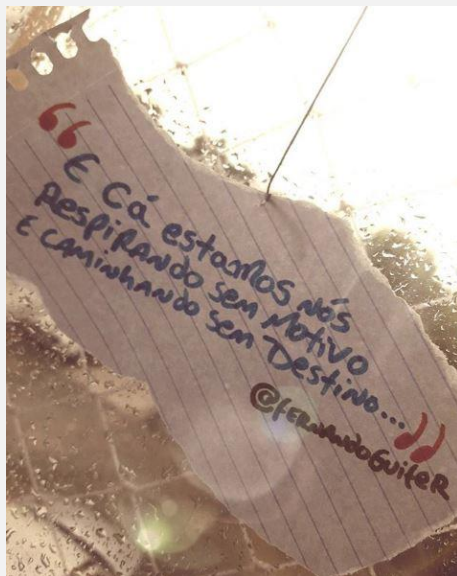 “
E Cá estamos nós
Respirando sem Motivo
E caminhando sem Destino...
”
@FERNANDOGUIFER